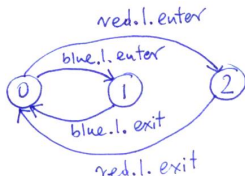 red.1.enter
blue.1.enter
0
1
2
blue.1.exit
red.1.exit